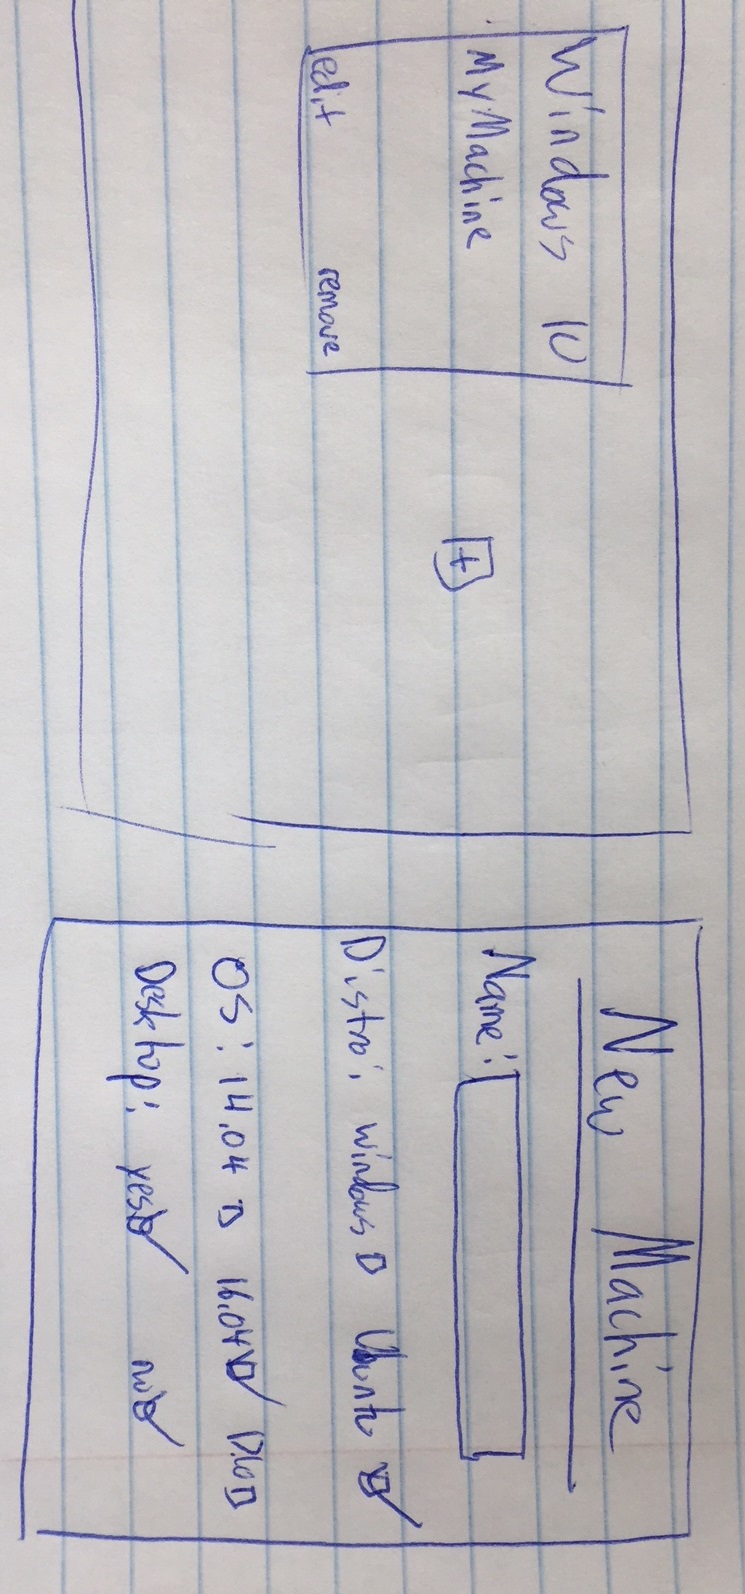 Windows 10
My Machine
edit remove
+
New Machine
Name:
Distro: windows Ubuntu
OS: 14.04 16.04
Desktop: yes no